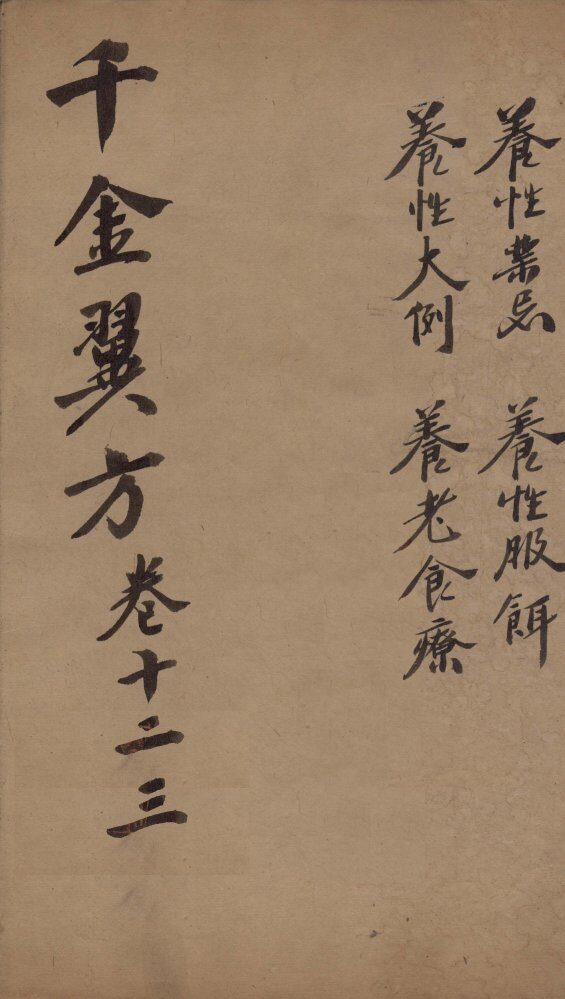 養性禁忌 養性服餌
養性大例 養老食療
千金翼方卷十二三